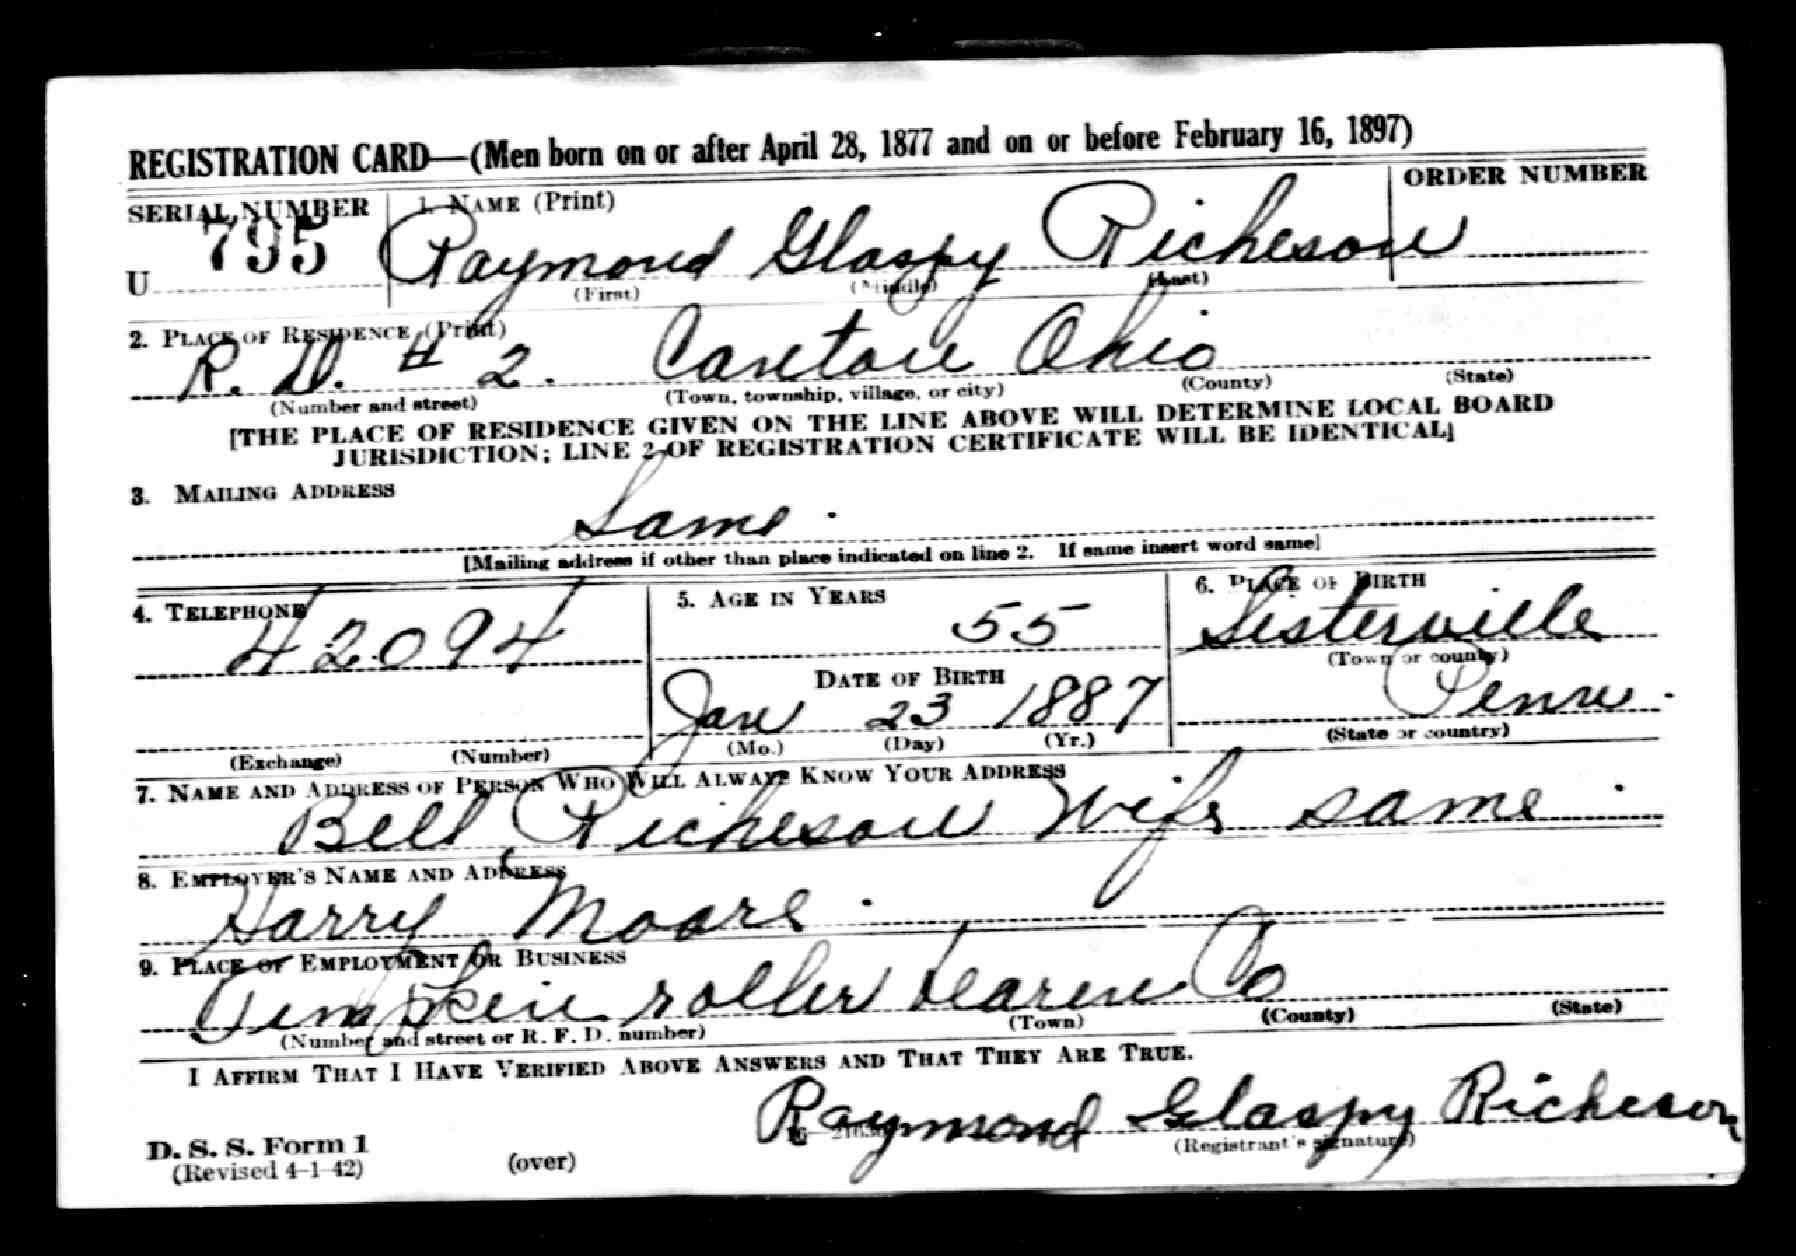 REGISTRATION CARD—(Men born on or after April 28, 1877 and on or before February 16, 1897)
SERIAL NUMBER 1. NAME (Print) ORDER NUMBER
U 795 Raymond Glaspy Richeson
(First) (Middle) (Last)
2. PLACE OF RESIDENCE (Print)
R. D. # 2. Canton Ohio
(Number and street) (Town, township, village, or city) (County) (State)
[THE PLACE OF RESIDENCE GIVEN ON THE LINE ABOVE WILL DETERMINE LOCAL BOARD
JURISDICTION; LINE 2 OF REGISTRATION CERTIFICATE WILL BE IDENTICAL]
3. MAILING ADDRESS
Same.
[Mailing address if other than place indicated on line 2. If same insert word same]
4. TELEPHONE 5. AGE IN YEARS 6. PLACE OF BIRTH
42094 55 Sisterville
(Town or county)
DATE OF BIRTH
Jan 23 1887 Penn.
(Exchange) (Number) (Mo.) (Day) (Yr.) (State or country)
7. NAME AND ADDRESS OF PERSON WHO WILL ALWAYS KNOW YOUR ADDRESS
Bell Richeson Wife same.
8. EMPLOYER'S NAME AND ADDRESS
Harry Moore.
9. PLACE OF EMPLOYMENT OR BUSINESS
Timpken roller bearen Co
(Number and street or R. F. D. number) (Town) (County) (State)
I AFFIRM THAT I HAVE VERIFIED ABOVE ANSWERS AND THAT THEY ARE TRUE.
Raymond Glaspy Richeson
D. S. S. Form 1
(Revised 4-1-42) (over) (Registrant's signature)